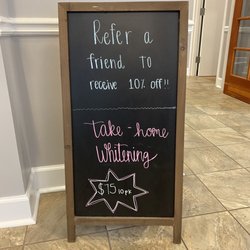 Refer a
friend TO
receive 10% off!!
take-home
Whitening
$15 10pk